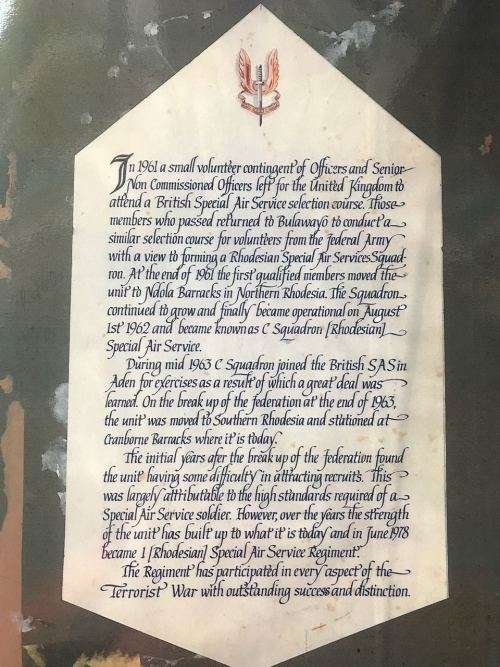 In 1961 a small volunteer contingent of Officers and Senior
Non Commissioned Officers left for the United Kingdom to
attend a British Special Air Service selection course. Those
members who passed returned to Bulawayo to conduct a
similar selection course for volunteers from the federal Army
with a view to forming a Rhodesian Special Air Services Squad-
ron. At the end of 1961 the first qualified members moved the
unit to Ndola Barracks in Northern Rhodesia. The Squadron
continued to grow and finally became operational on August
1st 1962 and became known as C Squadron [Rhodesian]
Special Air Service.
During mid 1963 C Squadron joined the British SAS in
Aden for exercises as a result of which a great deal was
learned. On the break up of the federation at the end of 1963,
the unit was moved to Southern Rhodesia and stationed at
Cranborne Barracks where it is today.
The initial years afer the break up of the federation found
the unit having some difficulty in attracting recruits. This
was largely attributable to the high standards required of a
Special Air Service soldier. However, over the years the strength
of the unit has built up to what it is today and in June 1978
became 1 [Rhodesian] Special Air Service Regiment.
The Regiment has participated in every aspect of the
Terrorist War with outstanding success and distinction.